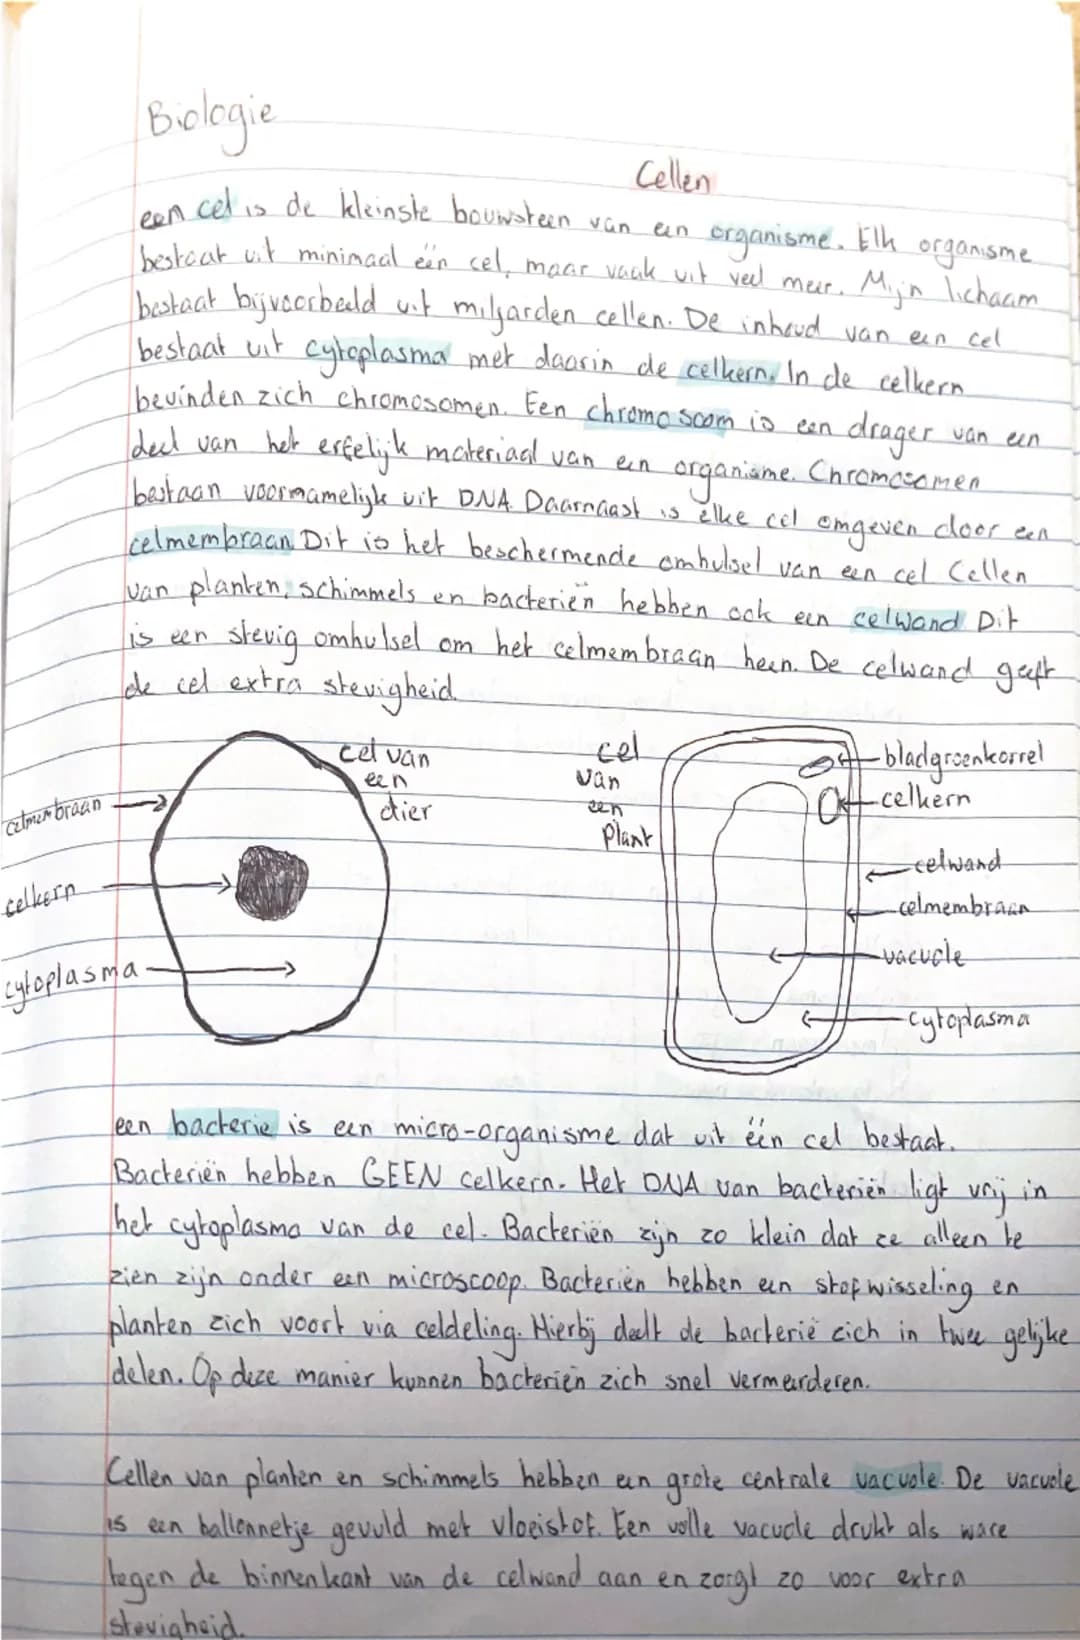 Biologie
Cellen
een cel is de kleinste bouwsteen van een organisme. Elk organisme
bestaat uit minimaal één cel, maar vaak uit veel meer. Mijn lichaam
bestaat bijvoorbeeld uit miljarden cellen. De inhoud van een cel
bestaat uit cytoplasma met daarin de celkern. In de celkern
bevinden zich chromosomen. Een chromosoom is een drager van een
deel van het erfelijk materiaal van een organisme. Chromosomen
bestaan voornamelijk uit DNA. Daarnaast is elke cel omgeven door een
celmembraan. Dit is het beschermende omhulsel van een cel Cellen
van planten, schimmels en bacteriën hebben ook een celwand Dit
is een stevig omhulsel om het celmembraan heen. De celwand geeft
de cel extra stevigheid.
cel van
een
dier
celmembraan
celkern
cytoplasma
cel
van
een
plant
bladgroenkorrel
celkern
celwand
celmembraan
vacuole
cytoplasma
een bacterie is een micro-organisme dat uit één cel bestaat.
Bacteriën hebben GEEN celkern. Het DNA van bacteriën ligt vrij in
het cytoplasma van de cel. Bacteriën zijn zo klein dat ze alleen te
zien zijn onder een microscoop. Bacteriën hebben een stofwisseling en
planten zich voort via celdeling. Hierbij deelt de bacterie zich in twee gelijke
delen. Op deze manier kunnen bacteriën zich snel vermeerderen.
Cellen van planten en schimmels hebben een grote centrale vacuole. De vacuole
is een ballonnetje gevuld met vloeistof. Een volle vacuole drukt als ware
tegen de binnenkant van de celwand aan en zorgt zo voor extra
stevigheid.